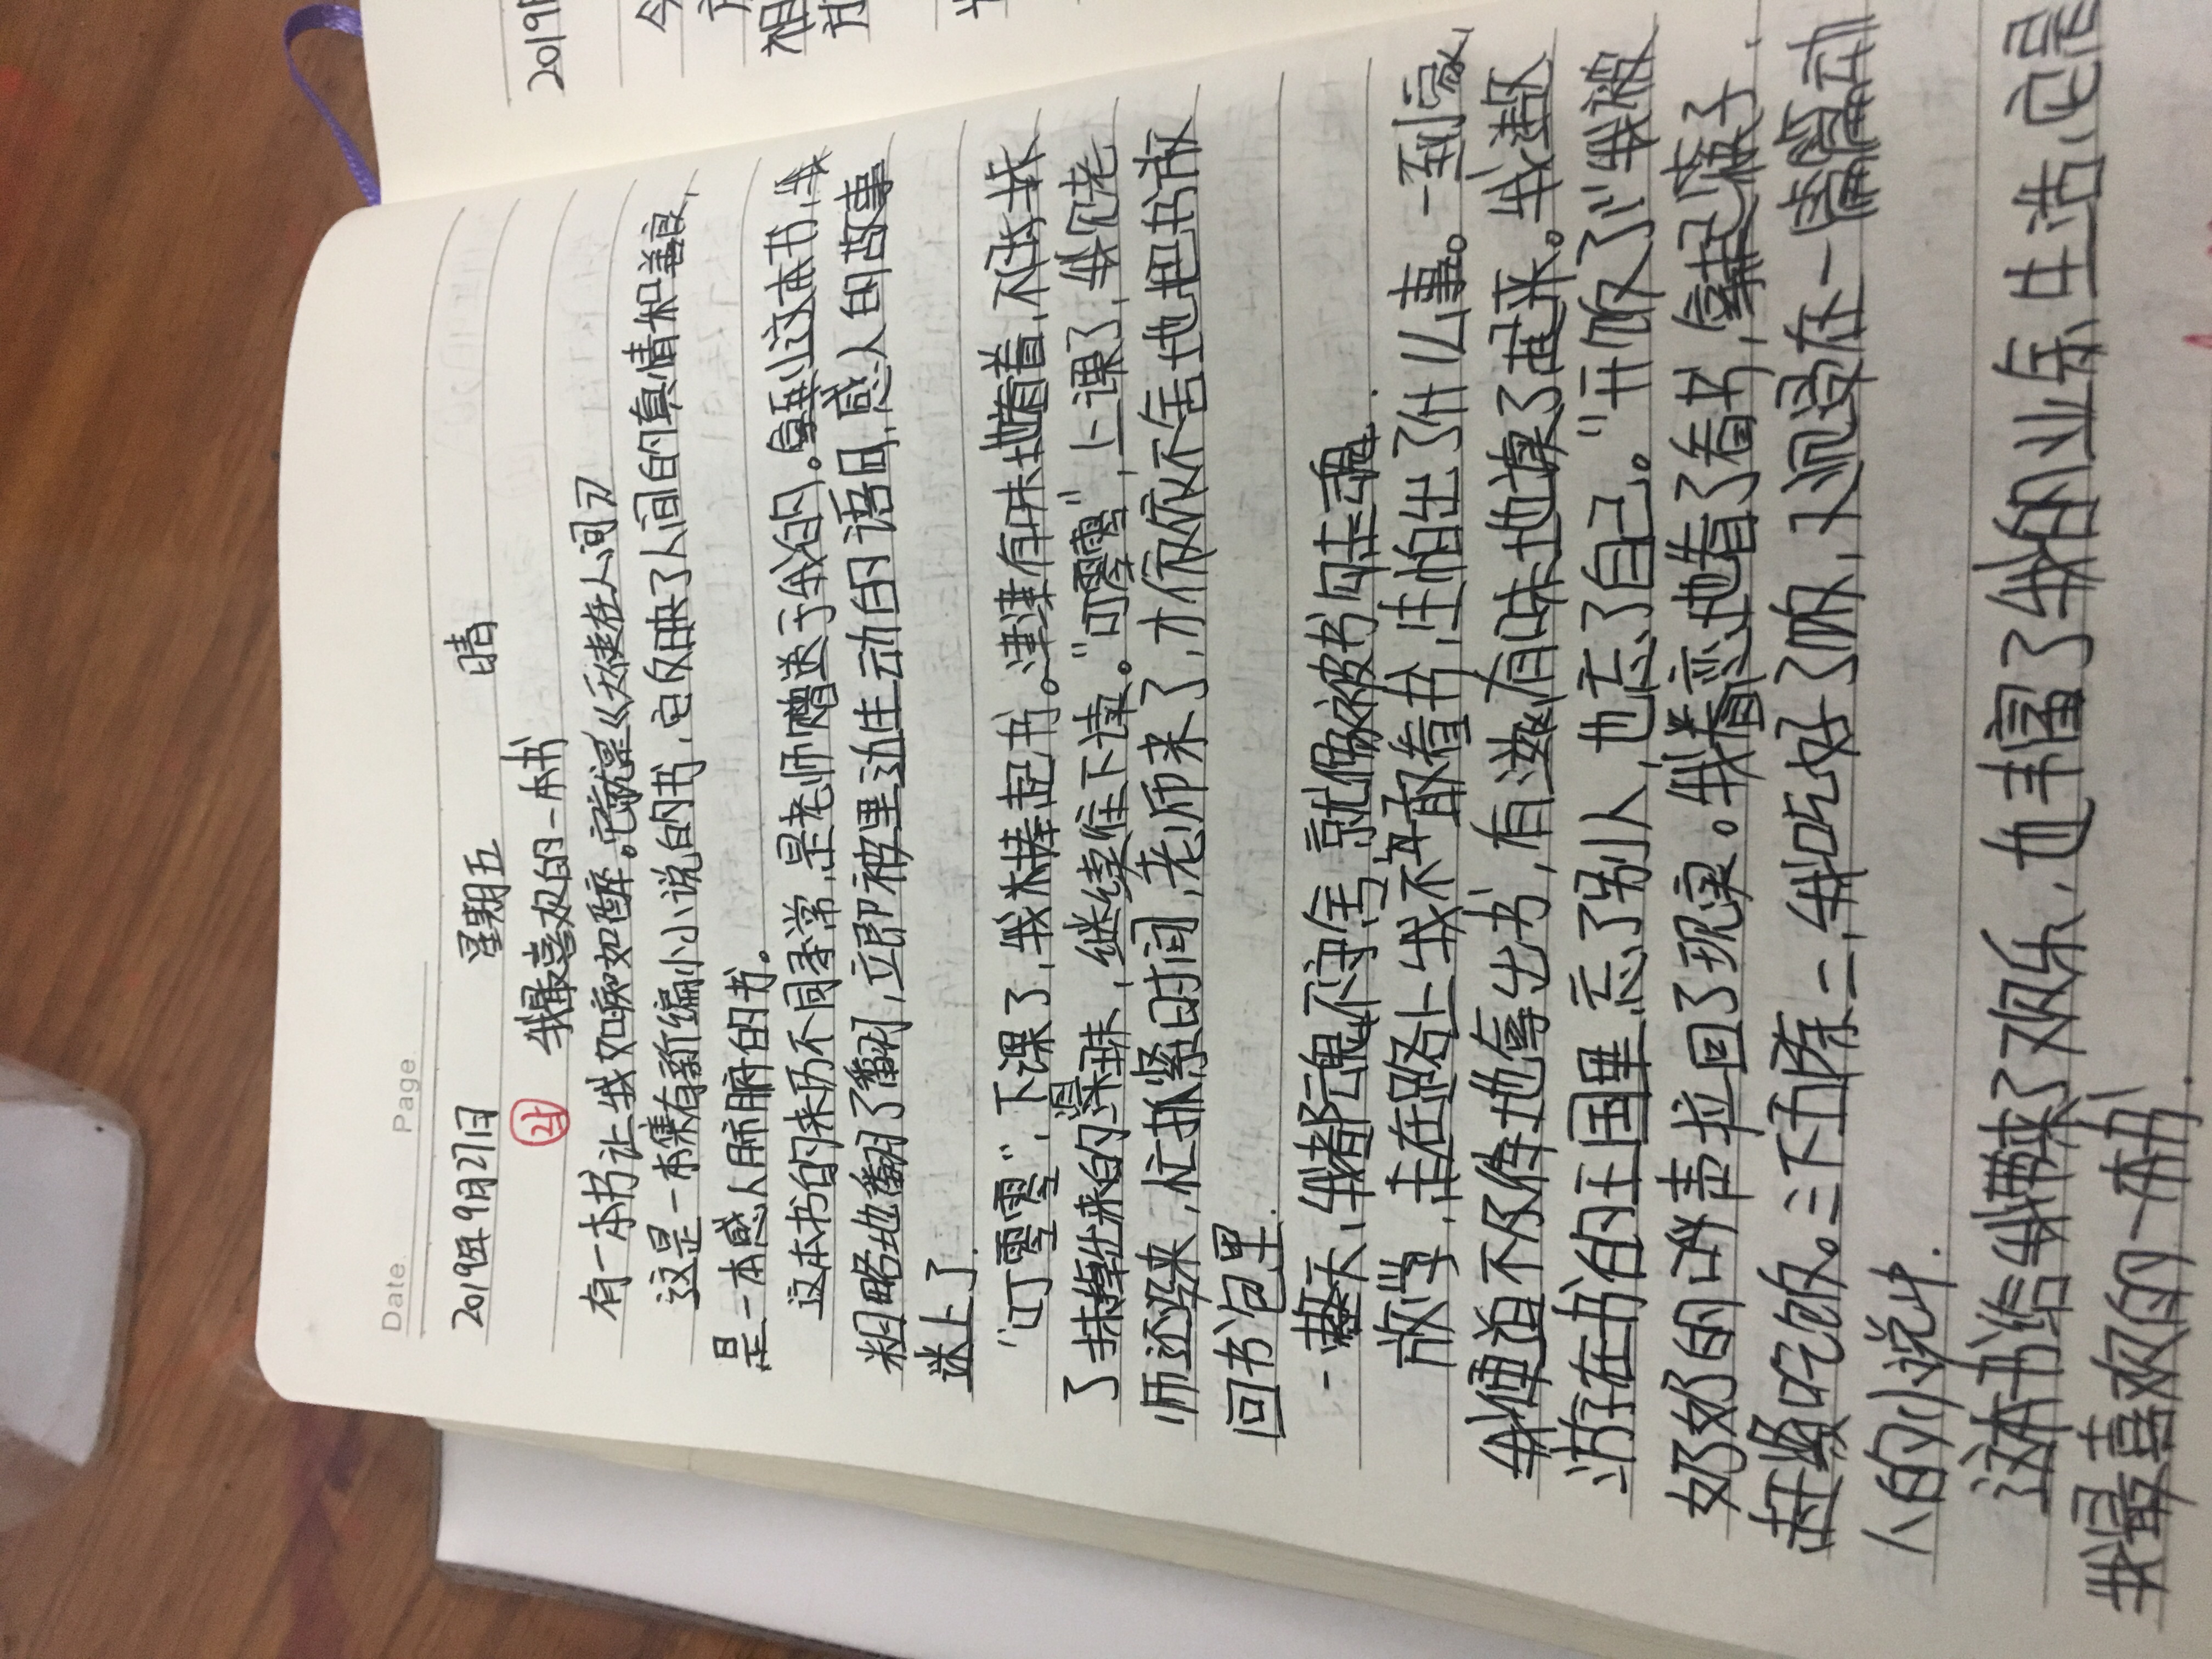 Date.          Page.
2019年9月27日    星期五    晴
21    我最喜欢的一本书
有一本书让我如痴如醉。它就是《天使在人间》
这是一本集有新编小小说的书,它反映了人间的真情和善良,
是一本感人肺腑的书。
这本书的来历不同寻常,是老师赠送于我的。拿到这本书,我
粗略地翻了翻,立即被里边生动的语句,感人的故事
迷上了.
“叮零零”,下课了,我捧起书。津津有味地看着,不时,抹
了抹掉出来的泪珠,继续往下读。“叮零零”,上课了,我见老
师还没来,忙抓紧时间,老师来了,才依依不舍地把书放
回书包里.
一整天,我都魂不守舍,就像被书勾走魂.
放学,走在路上我不敢看书,生怕出了什么事。一到家,
我便迫不及待地拿出书,有滋有味地读了起来。我
游在书的王国里,忘了别人,也忘了自己。“开饭了!”我被
奶奶的叫声拉回了现实。我看恋地看了看书,拿起筷子
赶紧吃饭。三下五除二,我吃好了饭,又沉浸在一篇篇动
人的小说中.
这本书给我带来了欢乐,也丰富了我的业余生活,它是
我最喜欢的一本书!
2019